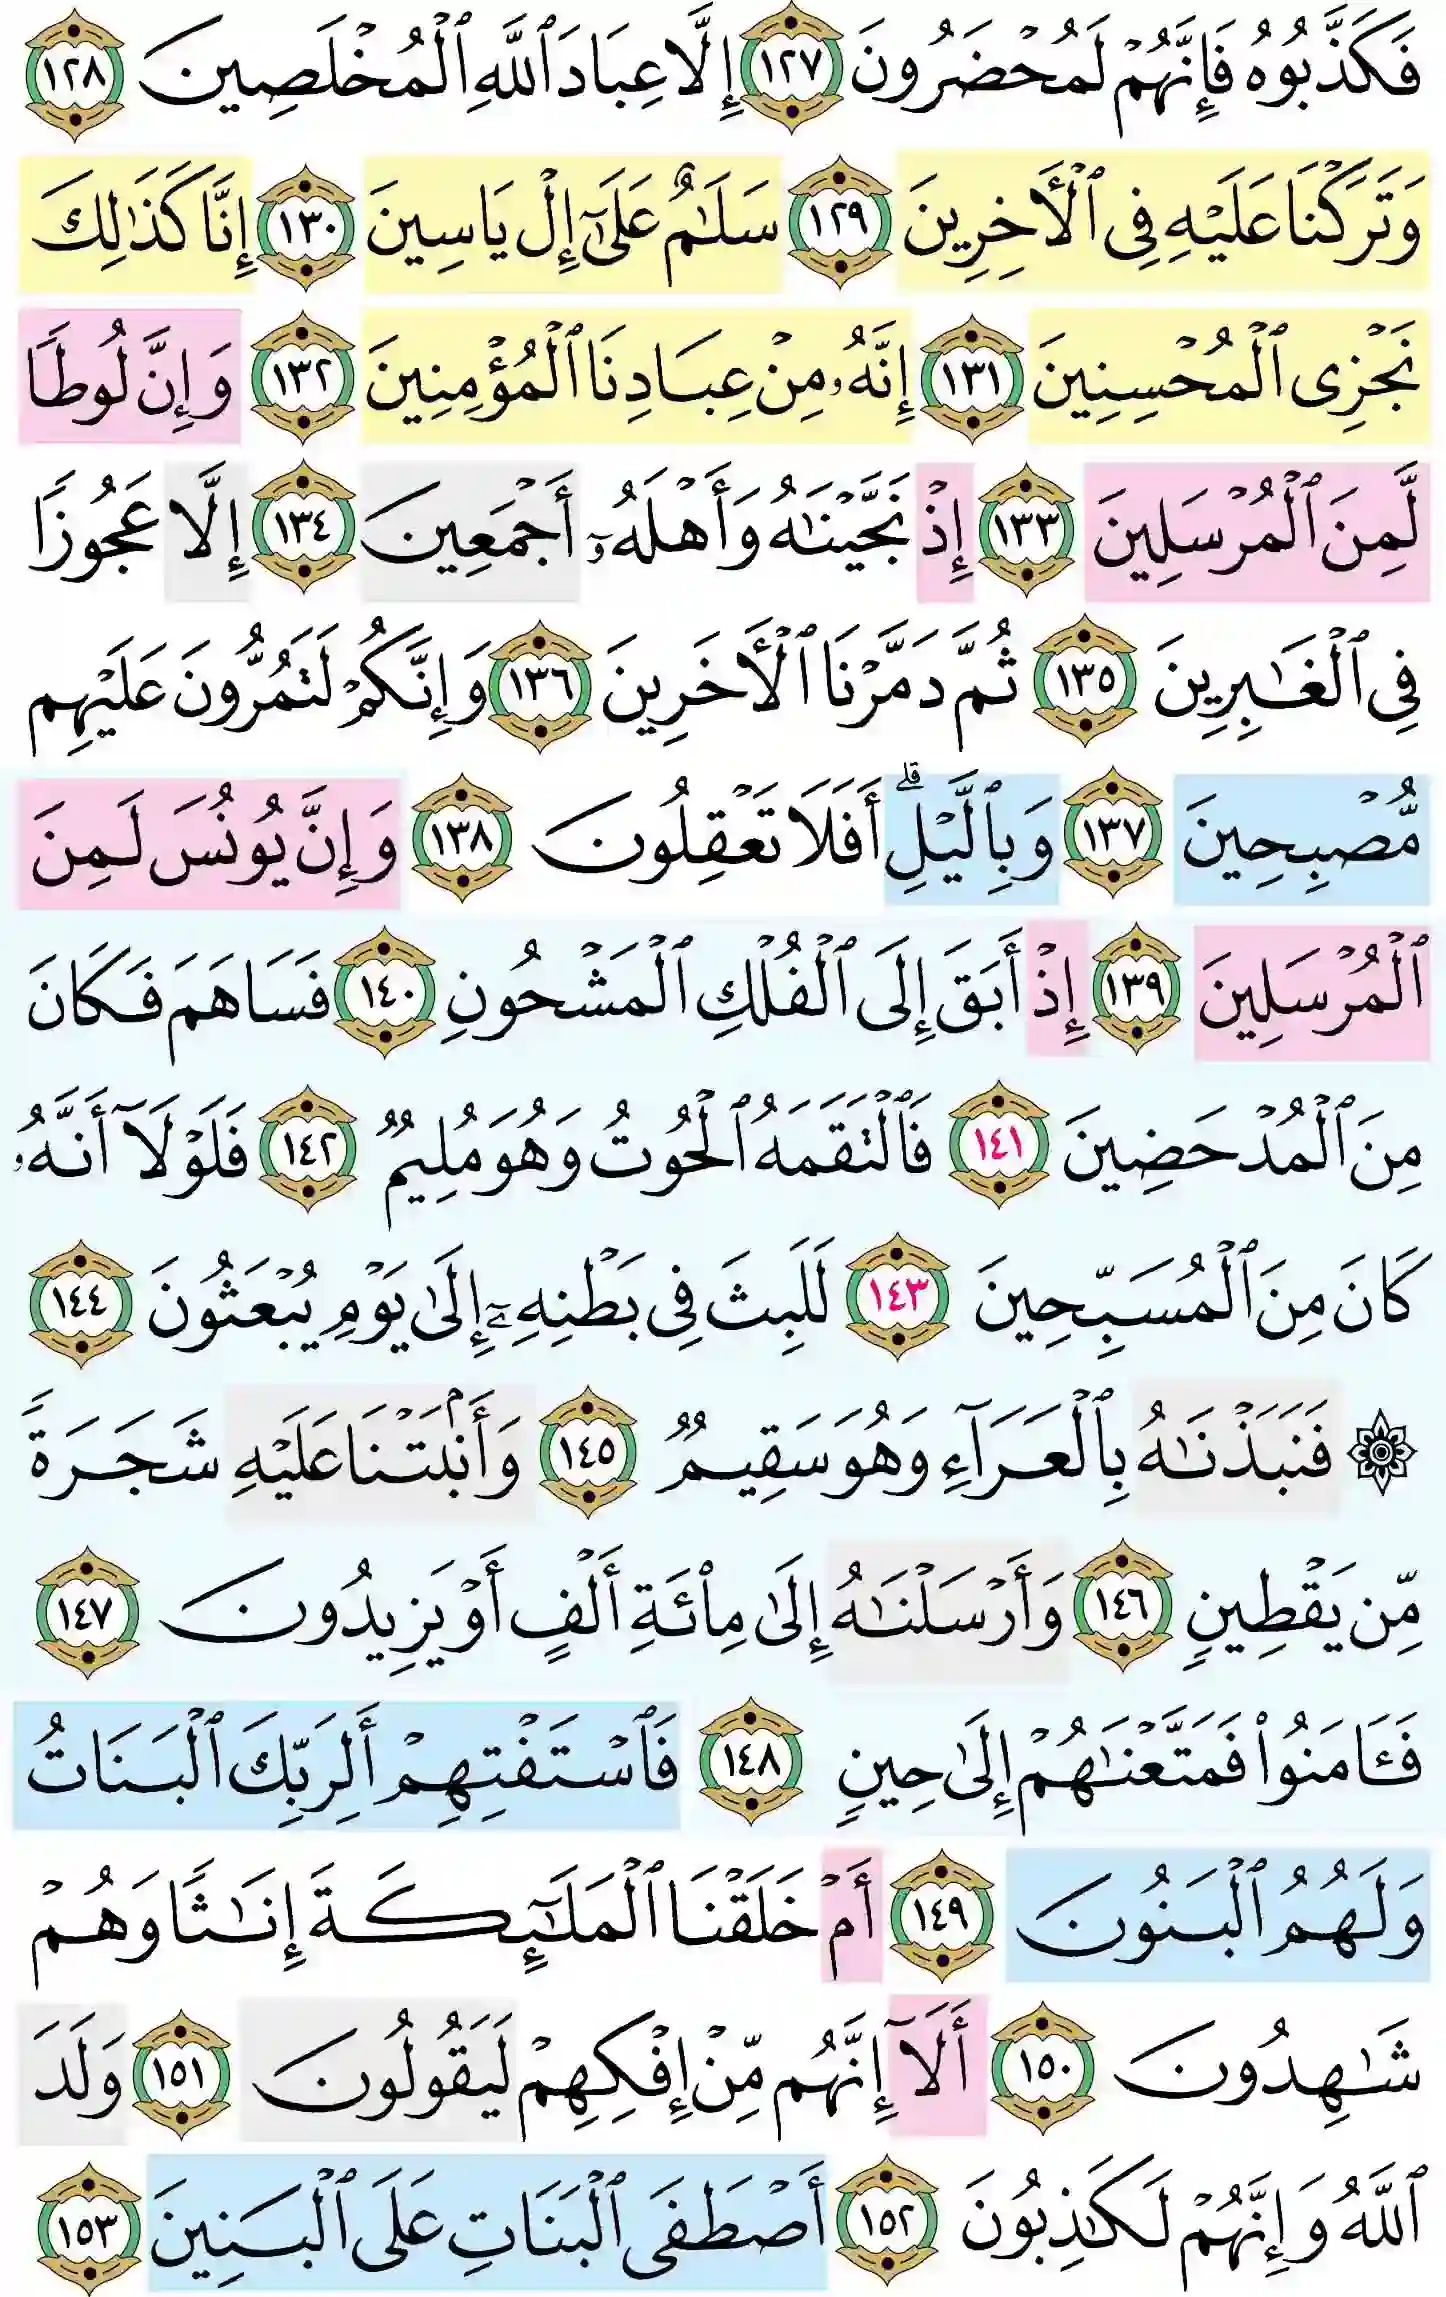 فَكَذَّبُوهُ فَإِنَّهُمْ لَمُحْضَرُونَ ١٢٧ إِلَّا عِبَادَ ٱللَّهِ ٱلْمُخْلَصِينَ ١٢٨
وَتَرَكْنَا عَلَيْهِ فِى ٱلْأَخِرِينَ ١٢٩ سَلَـٰمٌ عَلَىٰٓ إِلْ يَاسِينَ ١٣٠ إِنَّا كَذَٰلِكَ
نَجْزِى ٱلْمُحْسِنِينَ ١٣١ إِنَّهُۥ مِنْ عِبَادِنَا ٱلْمُؤْمِنِينَ ١٣٢ وَإِنَّ لُوطًا
لَّمِنَ ٱلْمُرْسَلِينَ ١٣٣ إِذْ نَجَّيْنَـٰهُ وَأَهْلَهُۥٓ أَجْمَعِينَ ١٣٤ إِلَّا عَجُوزًا
فِى ٱلْغَـٰبِرِينَ ١٣٥ ثُمَّ دَمَّرْنَا ٱلْأَخَرِينَ ١٣٦ وَإِنَّكُمْ لَتَمُرُّونَ عَلَيْهِم
مُّصْبِحِينَ ١٣٧ وَبِٱلَّيْلِ ۗ أَفَلَا تَعْقِلُونَ ١٣٨ وَإِنَّ يُونُسَ لَمِنَ
ٱلْمُرْسَلِينَ ١٣٩ إِذْ أَبَقَ إِلَى ٱلْفُلْكِ ٱلْمَشْحُونِ ١٤٠ فَسَاهَمَ فَكَانَ
مِنَ ٱلْمُدْحَضِينَ ١٤١ فَٱلْتَقَمَهُ ٱلْحُوتُ وَهُوَ مُلِيمٌ ١٤٢ فَلَوْلَآ أَنَّهُۥ
كَانَ مِنَ ٱلْمُسَبِّحِينَ ١٤٣ لَلَبِثَ فِى بَطْنِهِۦٓ إِلَىٰ يَوْمِ يُبْعَثُونَ ١٤٤
۞ فَنَبَذْنَـٰهُ بِٱلْعَرَآءِ وَهُوَ سَقِيمٌ ١٤٥ وَأَنۢبَتْنَا عَلَيْهِ شَجَرَةً
مِّن يَقْطِينٍ ١٤٦ وَأَرْسَلْنَـٰهُ إِلَىٰ مِا۟ئَةِ أَلْفٍ أَوْ يَزِيدُونَ ١٤٧
فَـَٔامَنُوا۟ فَمَتَّعْنَـٰهُمْ إِلَىٰ حِينٍ ١٤٨ فَٱسْتَفْتِهِمْ أَلِرَبِّكَ ٱلْبَنَاتُ
وَلَهُمُ ٱلْبَنُونَ ١٤٩ أَمْ خَلَقْنَا ٱلْمَلَـٰٓئِكَةَ إِنَـٰثًا وَهُمْ
شَـٰهِدُونَ ١٥٠ أَلَآ إِنَّهُم مِّنْ إِفْكِهِمْ لَيَقُولُونَ ١٥١ وَلَدَ
ٱللَّهُ وَإِنَّهُمْ لَكَـٰذِبُونَ ١٥٢ أَصْطَفَى ٱلْبَنَاتِ عَلَى ٱلْبَنِينَ ١٥٣